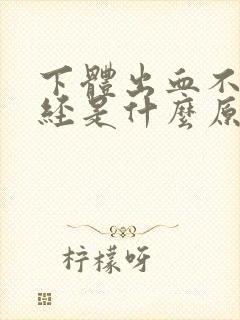 下體出血不
經是什麼原
柠檬呀